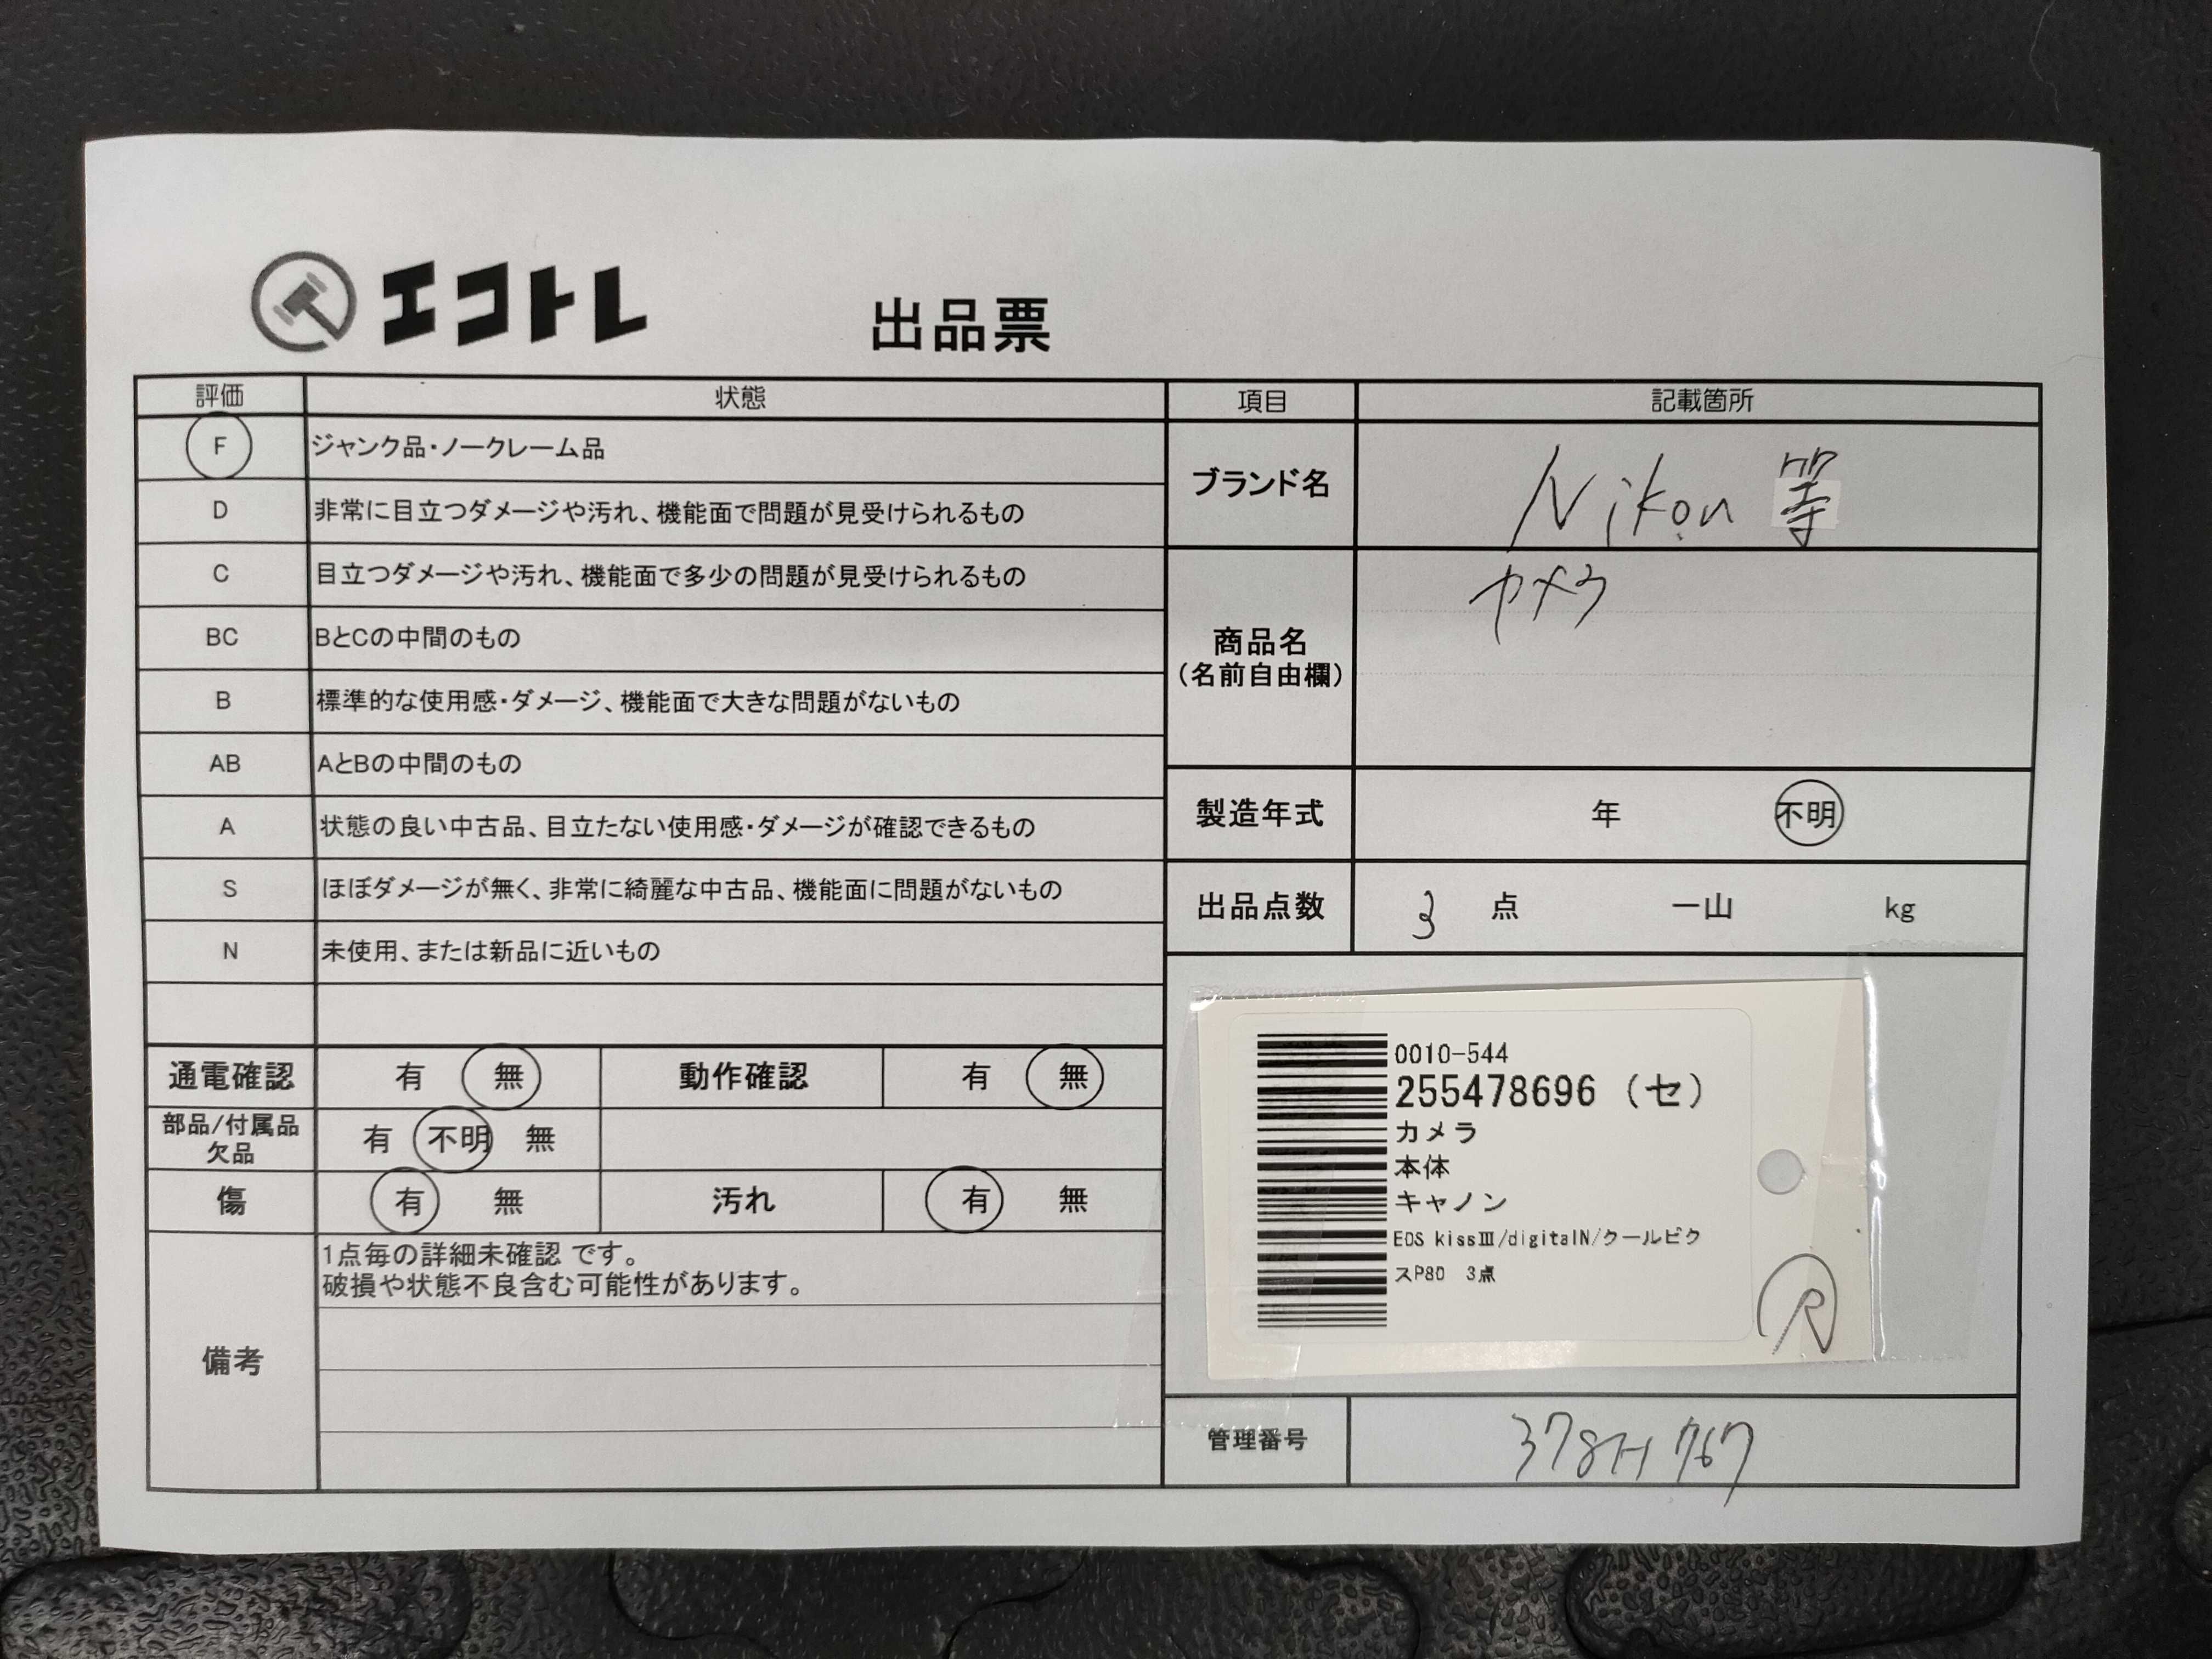 エコトレ
出品票
評価 状態
F ジャンク品・ノークレーム品
D 非常に目立つダメージや汚れ、機能面で問題が見受けられるもの
C 目立つダメージや汚れ、機能面で多少の問題が見受けられるもの
BC BとCの中間のもの
B 標準的な使用感・ダメージ、機能面で大きな問題がないもの
AB AとBの中間のもの
A 状態の良い中古品、目立たない使用感・ダメージが確認できるもの
S ほぼダメージが無く、非常に綺麗な中古品、機能面に問題がないもの
N 未使用、または新品に近いもの
通電確認 有 無 動作確認 有 無
部品/付属品
欠品 有 不明 無
傷 有 無 汚れ 有 無
備考
1点毎の詳細未確認 です。
破損や状態不良含む可能性があります。
項目 記載箇所
ブランド名 Nikon 等
商品名
(名前自由欄)
カメラ
製造年式 年 不明
出品点数 3 点 一山 kg
0010-544
255478696 (セ)
カメラ
本体
キャノン
EOS kissⅢ/digitalN/クールピク
スP80 3点
R
管理番号 378H767